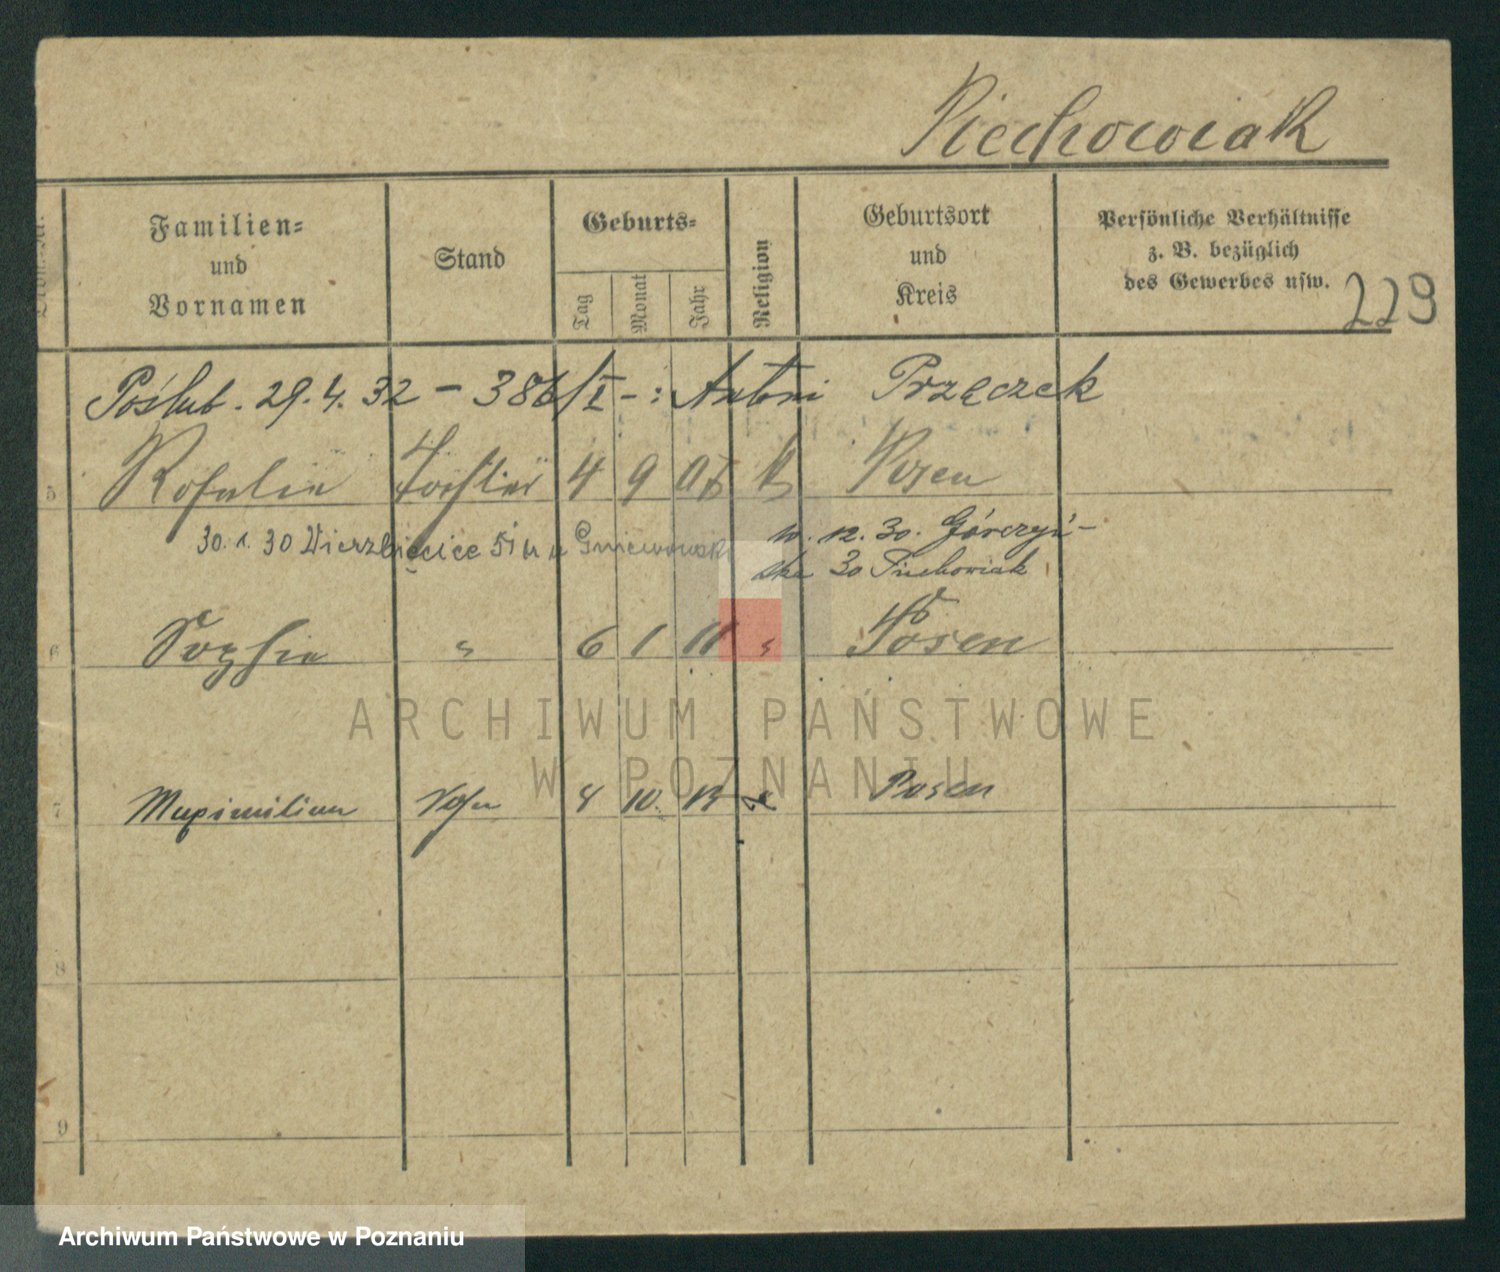 Piechowiak
Familien-
und
Vornamen
Stand
Geburts-
Tag
Monat
Jahr
Religion
Geburtsort
und
Kreis
Persönliche Verhältnisse
z. B. bezüglich
des Gewerbes usw.
229
Poślub. 29.4.32 - 386/I -: Antoni Przączek
5 Rosalie Tochter 4 9 07 k Posen
30.1.30 Wierzbięcice 51 u Gniewowski
w. 12. 30. Górczyń-
ska 30 Piechowiak
6 Sophie " 6 1 11 " Posen
ARCHIWUM PAŃSTWOWE
W POZNANIU
7 Maximilian Sohn 4 10. 13 k Posen
8
9
Archiwum Państwowe w Poznaniu